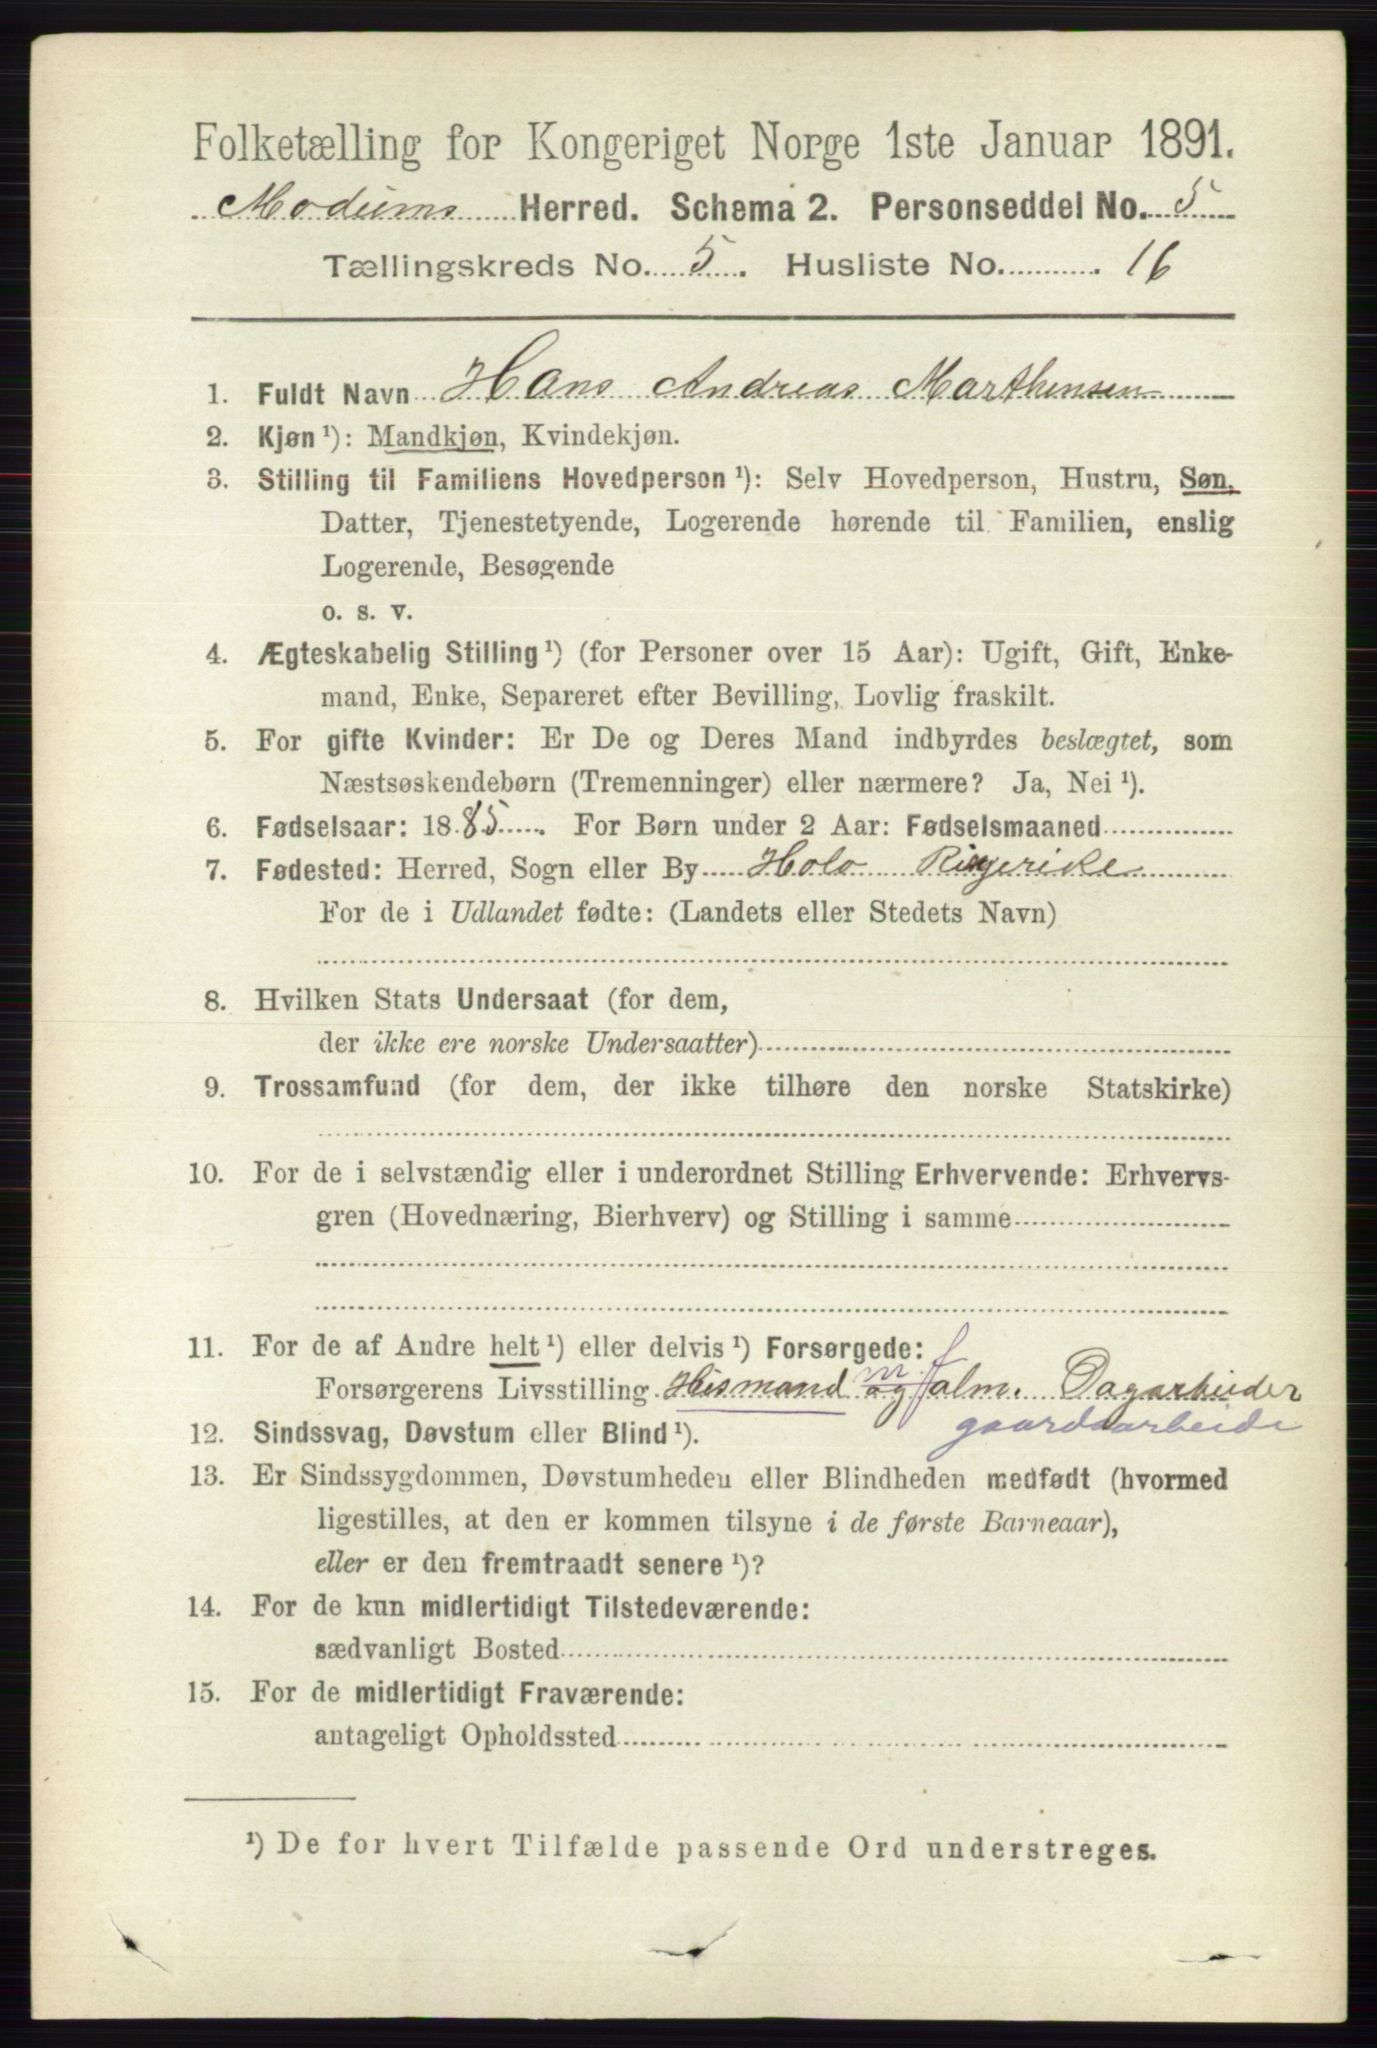 Folketælling for Kongeriget Norge 1ste Januar 1891.
Modums Herred. Schema 2. Personseddel No. 5
Tællingskreds No. 5. Husliste No. 16
1. Fuldt Navn Hans Andreas Marthinsen
2. Kjøn ¹): Mandkjøn, Kvindekjøn.
3. Stilling til Familiens Hovedperson ¹): Selv Hovedperson, Hustru, Søn,
Datter, Tjenestetyende, Logerende hørende til Familien, enslig
Logerende, Besøgende
o. s. v.
4. Ægteskabelig Stilling ¹) (for Personer over 15 Aar): Ugift, Gift, Enke-
mand, Enke, Separeret efter Bevilling, Lovlig fraskilt.
5. For gifte Kvinder: Er De og Deres Mand indbyrdes beslægtet, som
Næstsøskendebørn (Tremenninger) eller nærmere? Ja, Nei ¹).
6. Fødselsaar: 1885. For Børn under 2 Aar: Fødselsmaaned
7. Fødested: Herred, Sogn eller By Holo Ringerike
For de i Udlandet fødte: (Landets eller Stedets Navn)
8. Hvilken Stats Undersaat (for dem,
der ikke ere norske Undersaatter)
9. Trossamfund (for dem, der ikke tilhøre den norske Statskirke)
10. For de i selvstændig eller i underordnet Stilling Erhvervende: Erhvervs-
gren (Hovednæring, Bierhverv) og Stilling i samme
11. For de af Andre helt ¹) eller delvis ¹) Forsørgede:
Forsørgerens Livsstilling Husmand og m f alm. Dagarbeider
gaardsarbeide
12. Sindssvag, Døvstum eller Blind ¹).
13. Er Sindssygdommen, Døvstumheden eller Blindheden medfødt (hvormed
ligestilles, at den er kommen tilsyne i de første Barneaar),
eller er den fremtraadt senere ¹)?
14. For de kun midlertidigt Tilstedeværende:
sædvanligt Bosted
15. For de midlertidigt Fraværende:
antageligt Opholdssted
¹) De for hvert Tilfælde passende Ord understreges.